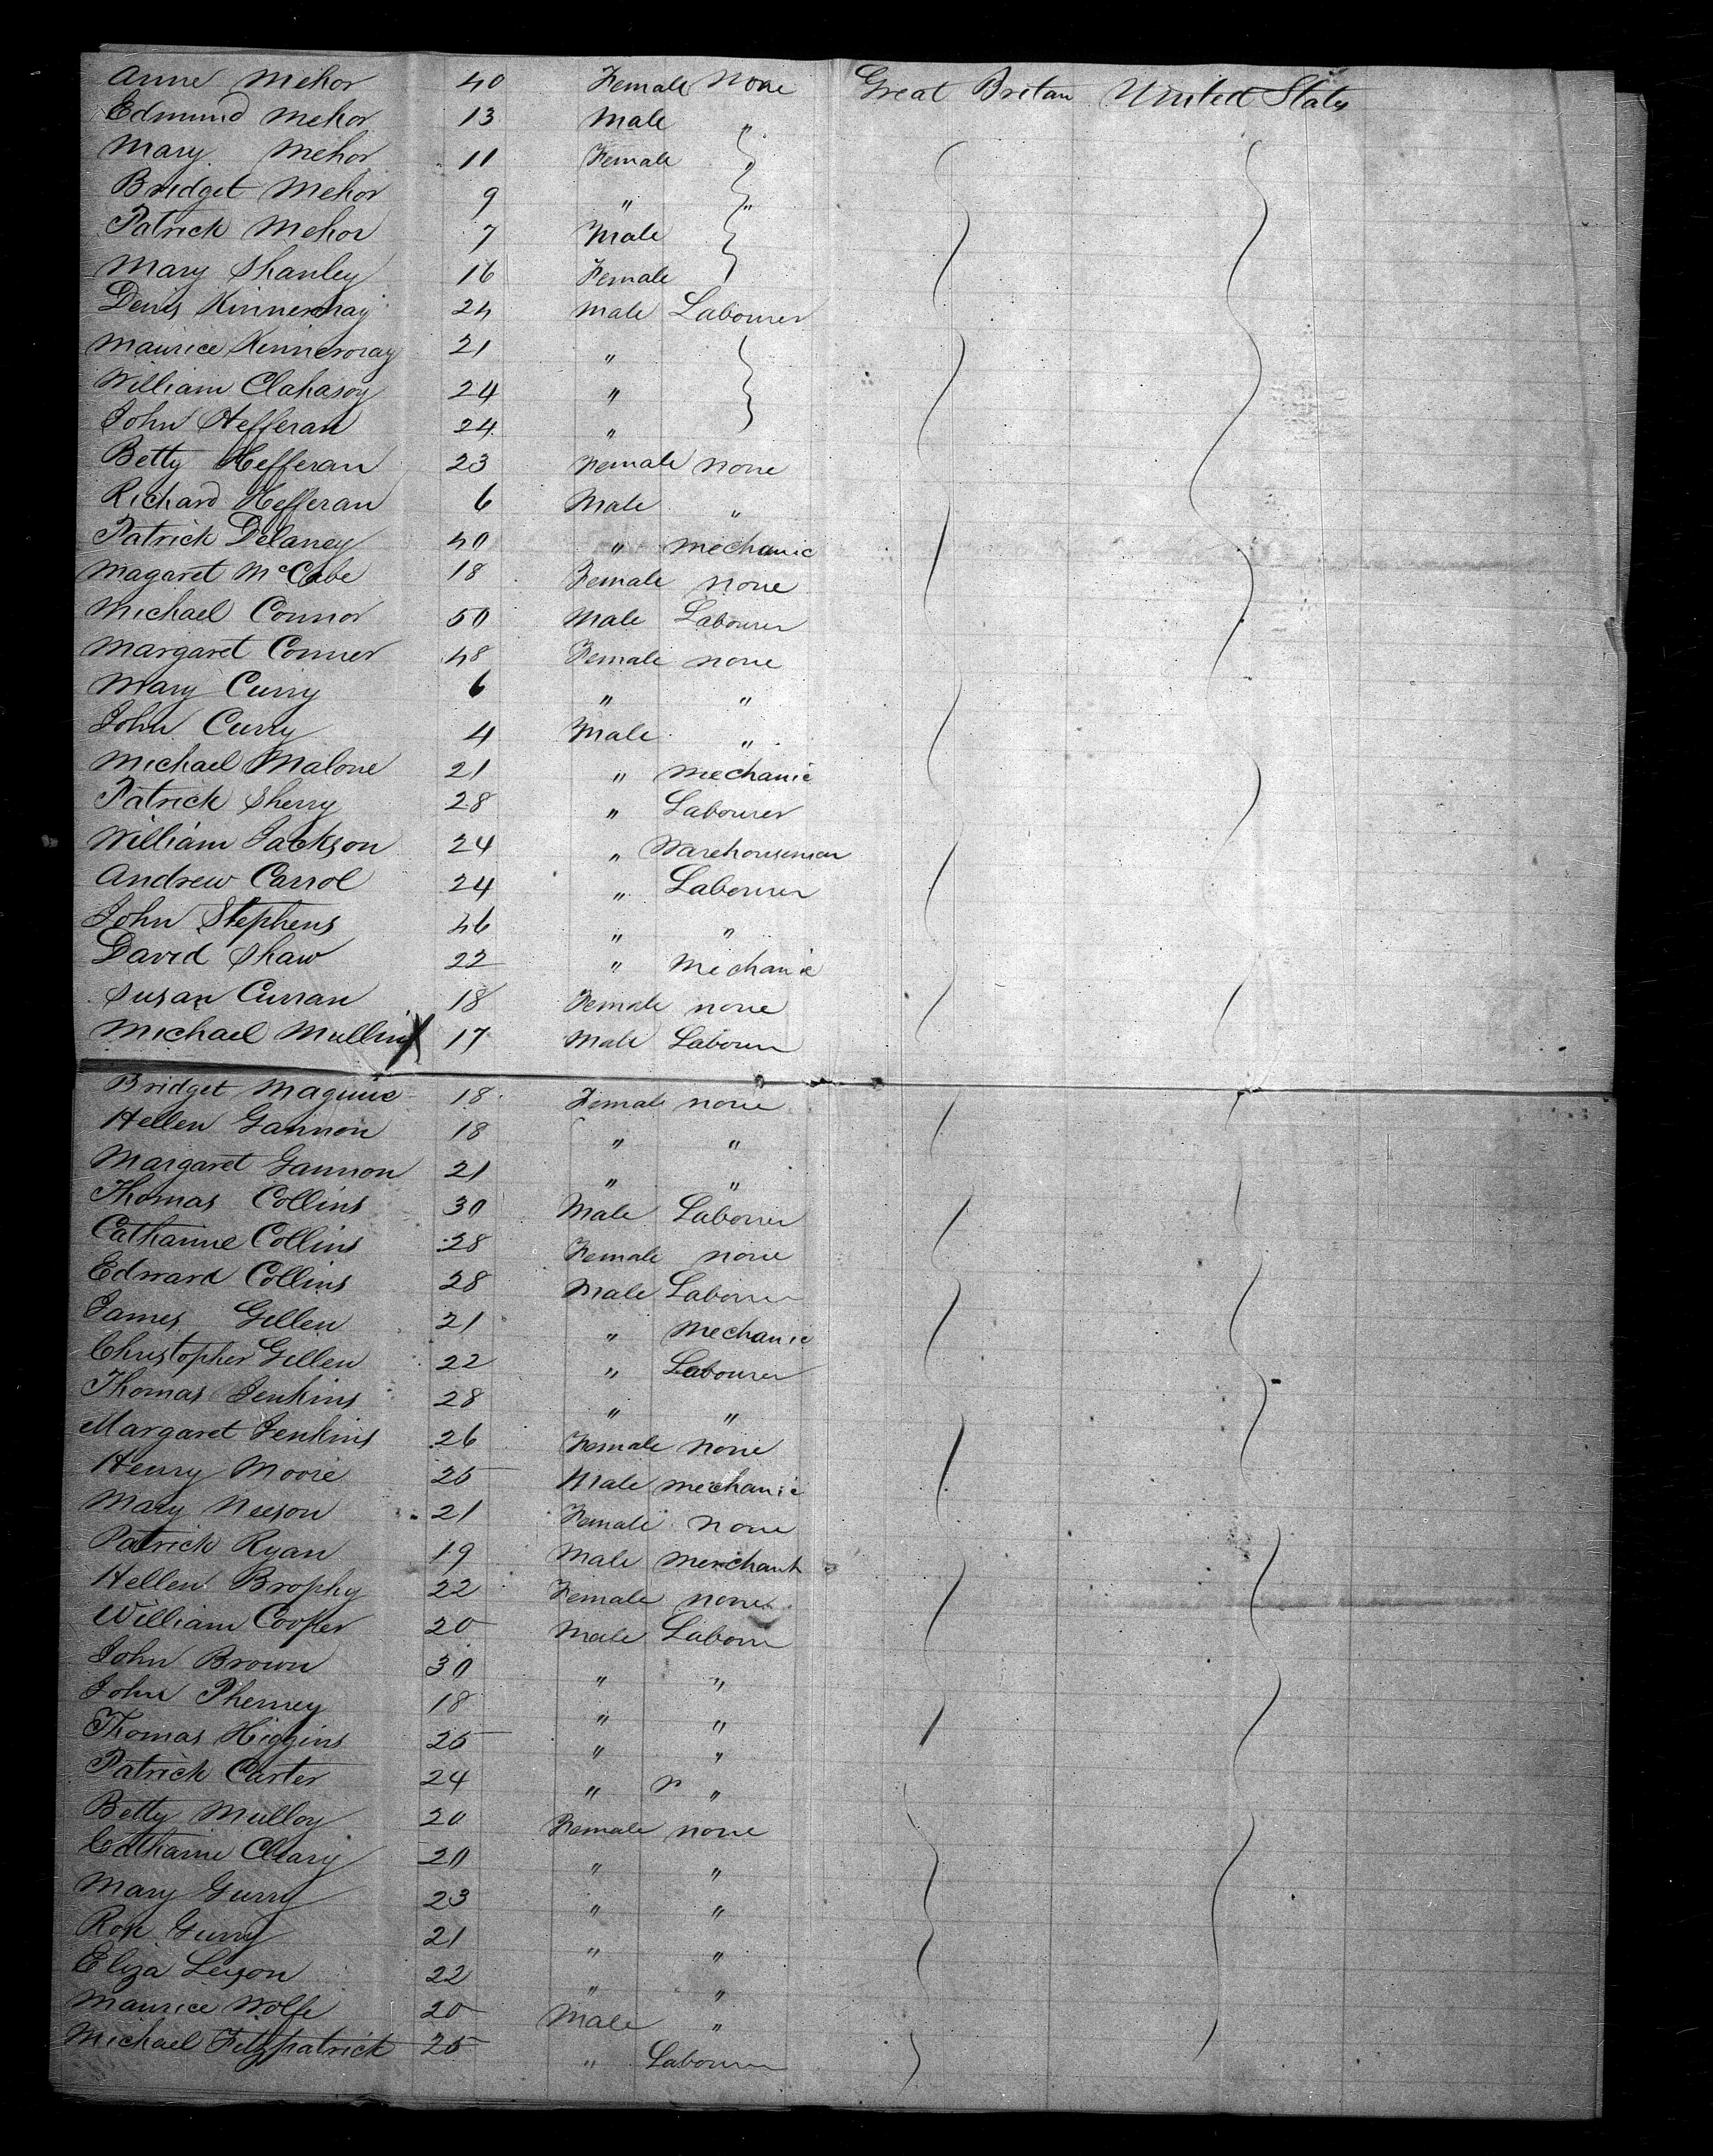 Anne Mehor 40 Female None Great Britan United States
Edmund Mehor 13 Male "
Mary Mehor 11 Female "
Bridget Mehor 9 " "
Patrick Mehor 7 Male
Mary Shanley 16 Female
Denis 24 Male Labourer
Maurice 21 "
William Clahasoy 24 "
John Hefferan 24 "
Betty Hefferan 23 Female none
Richard Hefferan 6 Male "
Patrick Delaney 40 " Mechanic
Magaret McCabe 18 Female none
Michael Connor 50 Male Labourer
Margaret Conner 48 Female none
Mary Curry 6 " "
John Curry 4 Male "
Michael Malone 21 " Mechanic
Patrick Sherry 28 " Labourer
William Jackson 24 " Warehouseman
Andrew Carrol 24 " Labourer
John Stephens 46 " "
David Shaw 22 " Mechanic
Susan Curran 18 Female none
Michael Mullin X 17 Male Labourer
Bridget Maguire 18 Female none
Hellen Gannon 18 " "
Margaret Gannon 21 " "
Thomas Collins 30 Male Labourer
Catharine Collins 28 Female none
Edward Collins 28 Male Labourer
James Gillen 21 " Mechanic
Christopher Gillen 22 " Labourer
Thomas Jenkins 28 " "
Margaret Jenkins 26 Female none
Henry Moore 25 Male Mechanic
Mary Neeson 21 Female none
Patrick Ryan 19 Male Merchant
Hellen Brophy 22 Female none
William Cooper 20 Male Labourer
John Brown 30 " "
John Pherney 18 " "
Thomas Higgins 25 " "
Patrick Carter 24 " "
Betty Mulloy 20 Female none
Catharine Cleary 20 " "
Mary Gurry 23 " "
Rose Gurry 21 " "
Eliza Leeson 22 " "
Maurice Wolfe 20 Male "
Michael Fitzpatrick 25 " Labourer